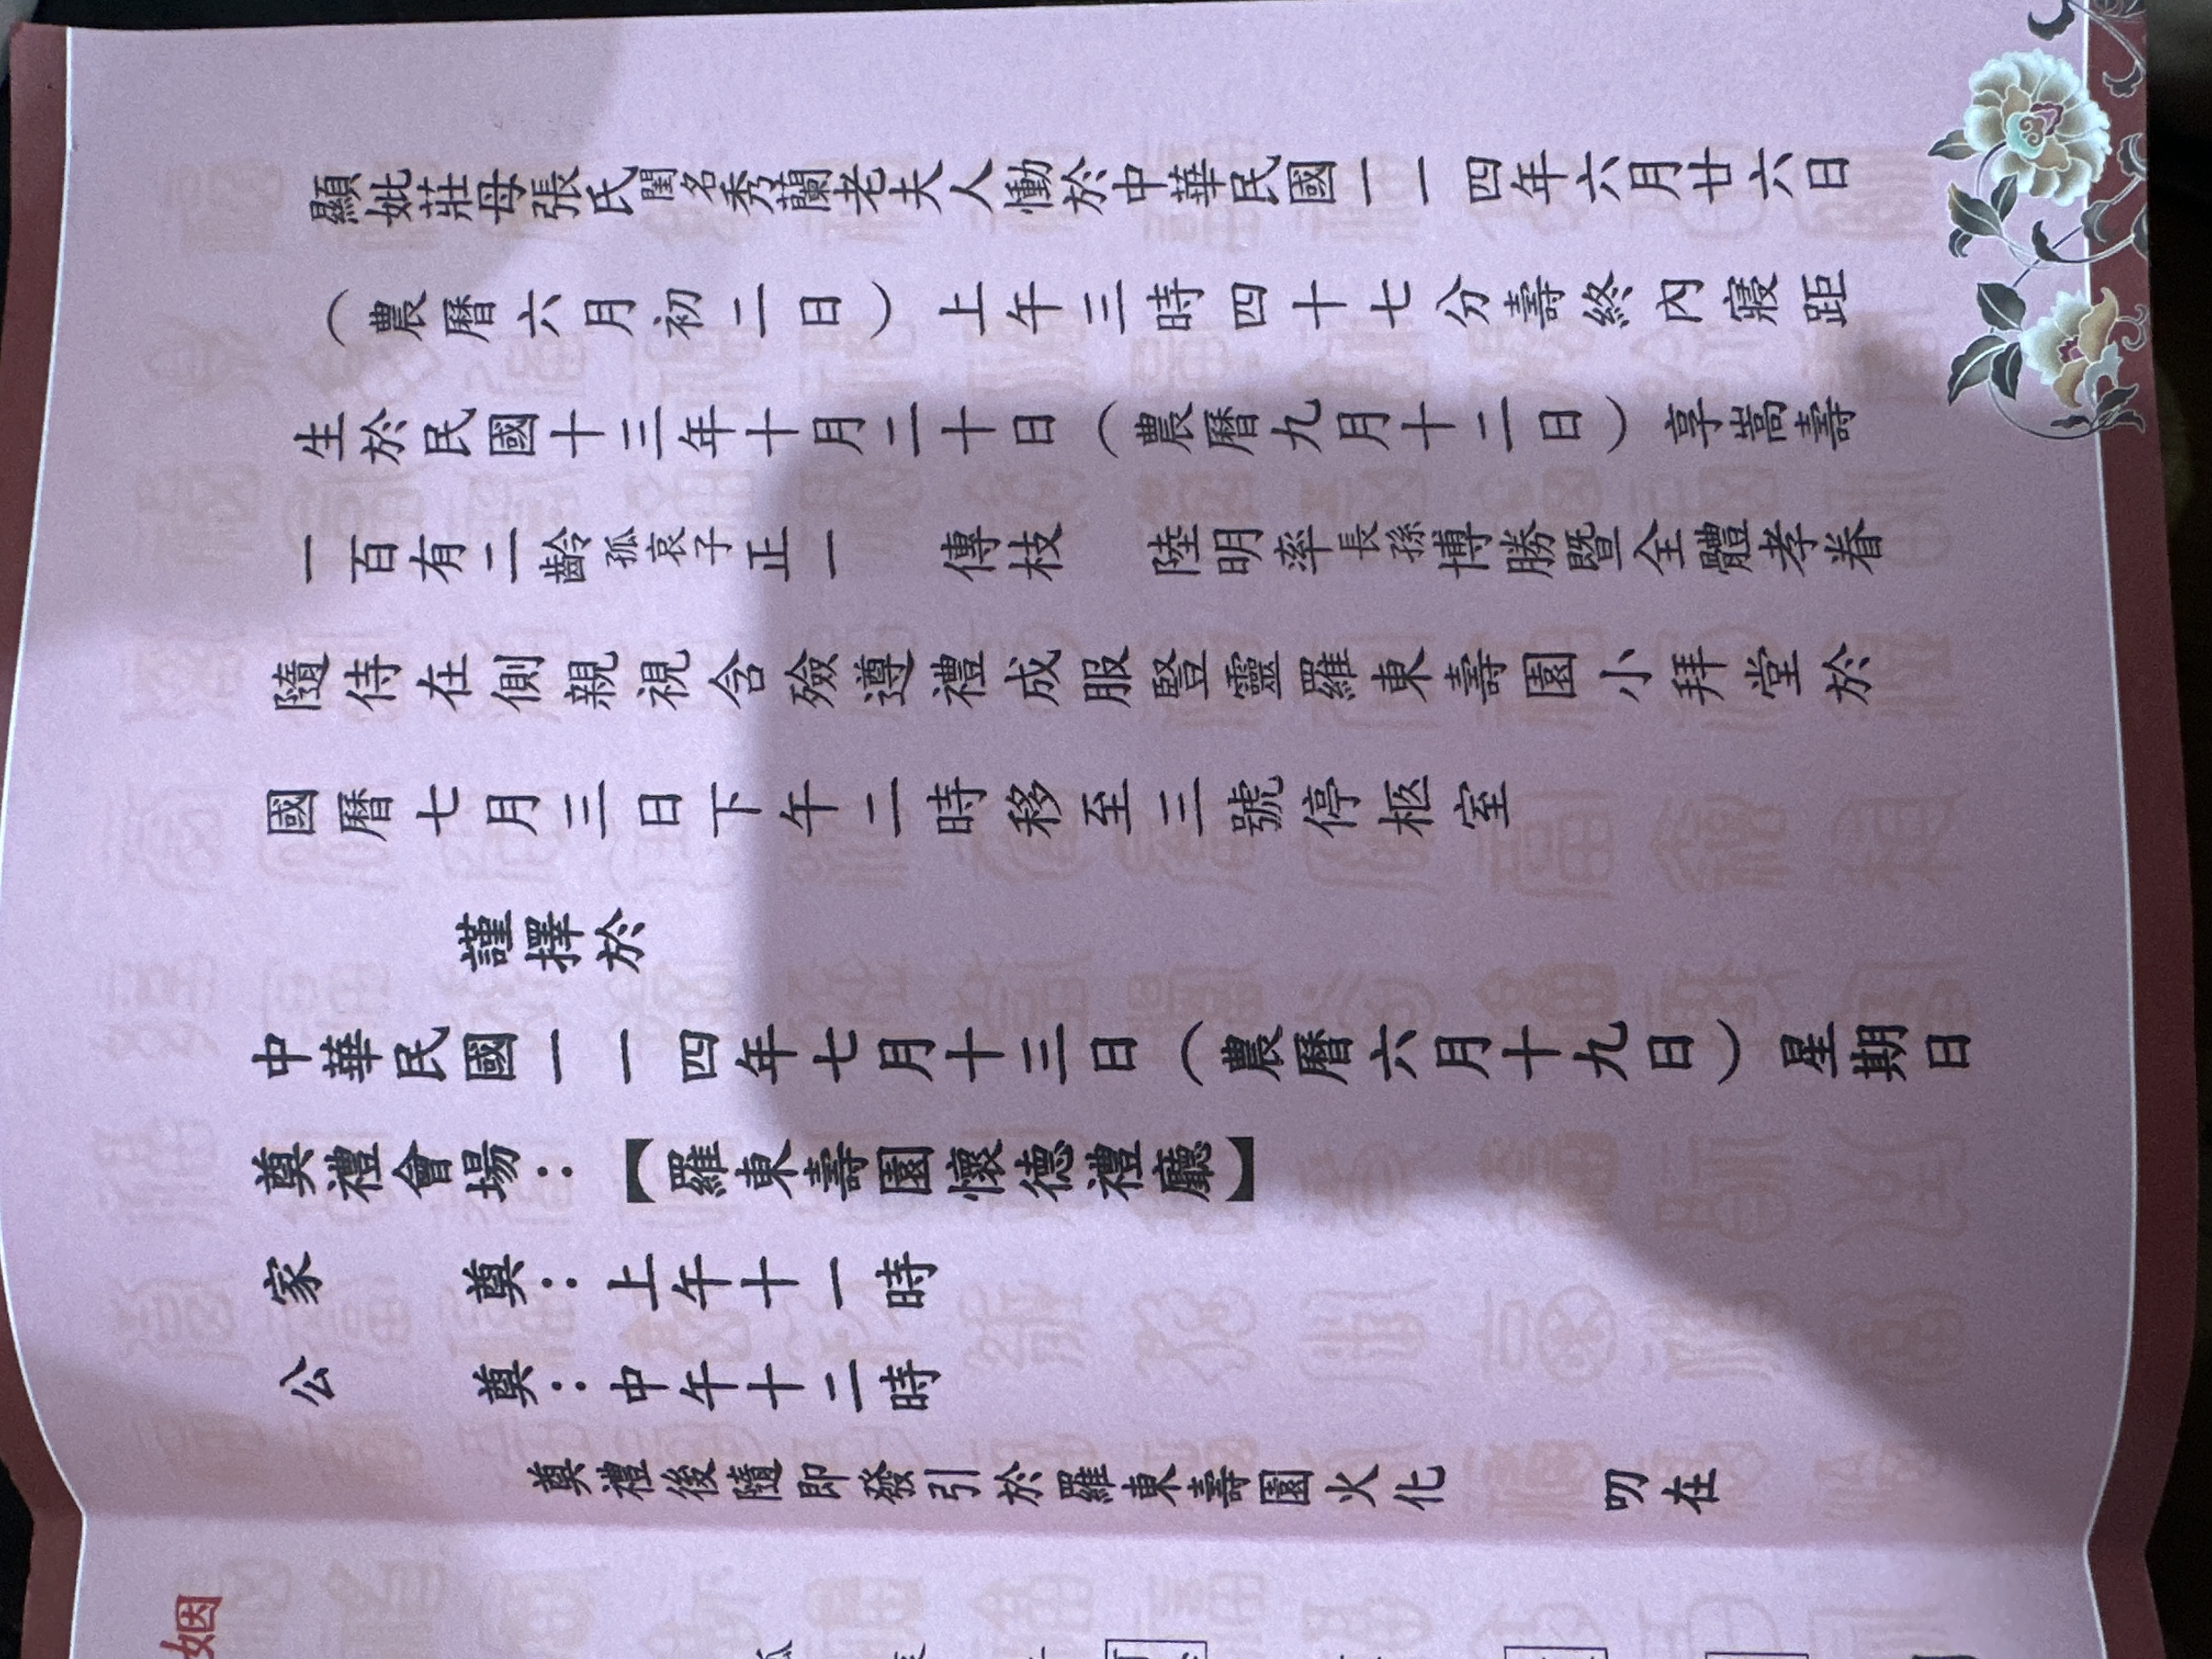 顯妣莊母張氏閨名秀蘭老夫人慟於中華民國一一四年六月廿六日
（農曆六月初二日）上午三時四十七分壽終內寢距
生於民國十三年十月二十日（農曆九月十二日）享嵩壽
一百有二齡孤哀子正一　傳枝　陸明率長孫博勝暨全體孝眷
隨侍在側親視含殮遵禮成服豎靈羅東壽園小拜堂於
國曆七月三日下午二時移至三號停柩室
謹擇於
中華民國一一四年七月十三日（農曆六月十九日）星期日
奠禮會場：【羅東壽園懷德禮廳】
家　奠：上午十一時
公　奠：中午十二時
奠禮後隨即發引於羅東壽園火化　叨在
姻